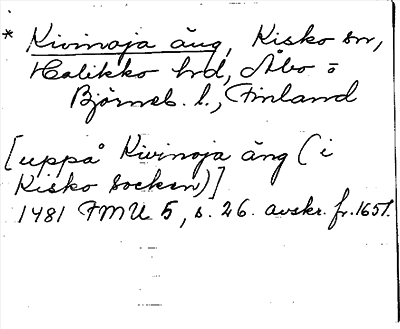 * Kivinoja äng, Kisko sn,
Halikko hd, Åbo o
Björneb. l., Finland
[uppå Kivinoja äng (i
Kisko socken)]
1481 FMU 5, s. 26. avskr. fr. 1651.